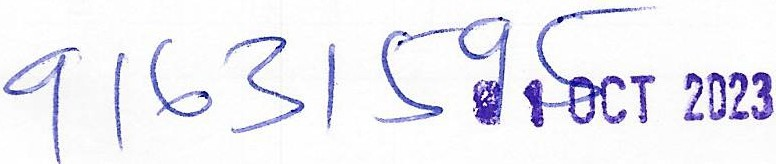 91631595
OCT 2023